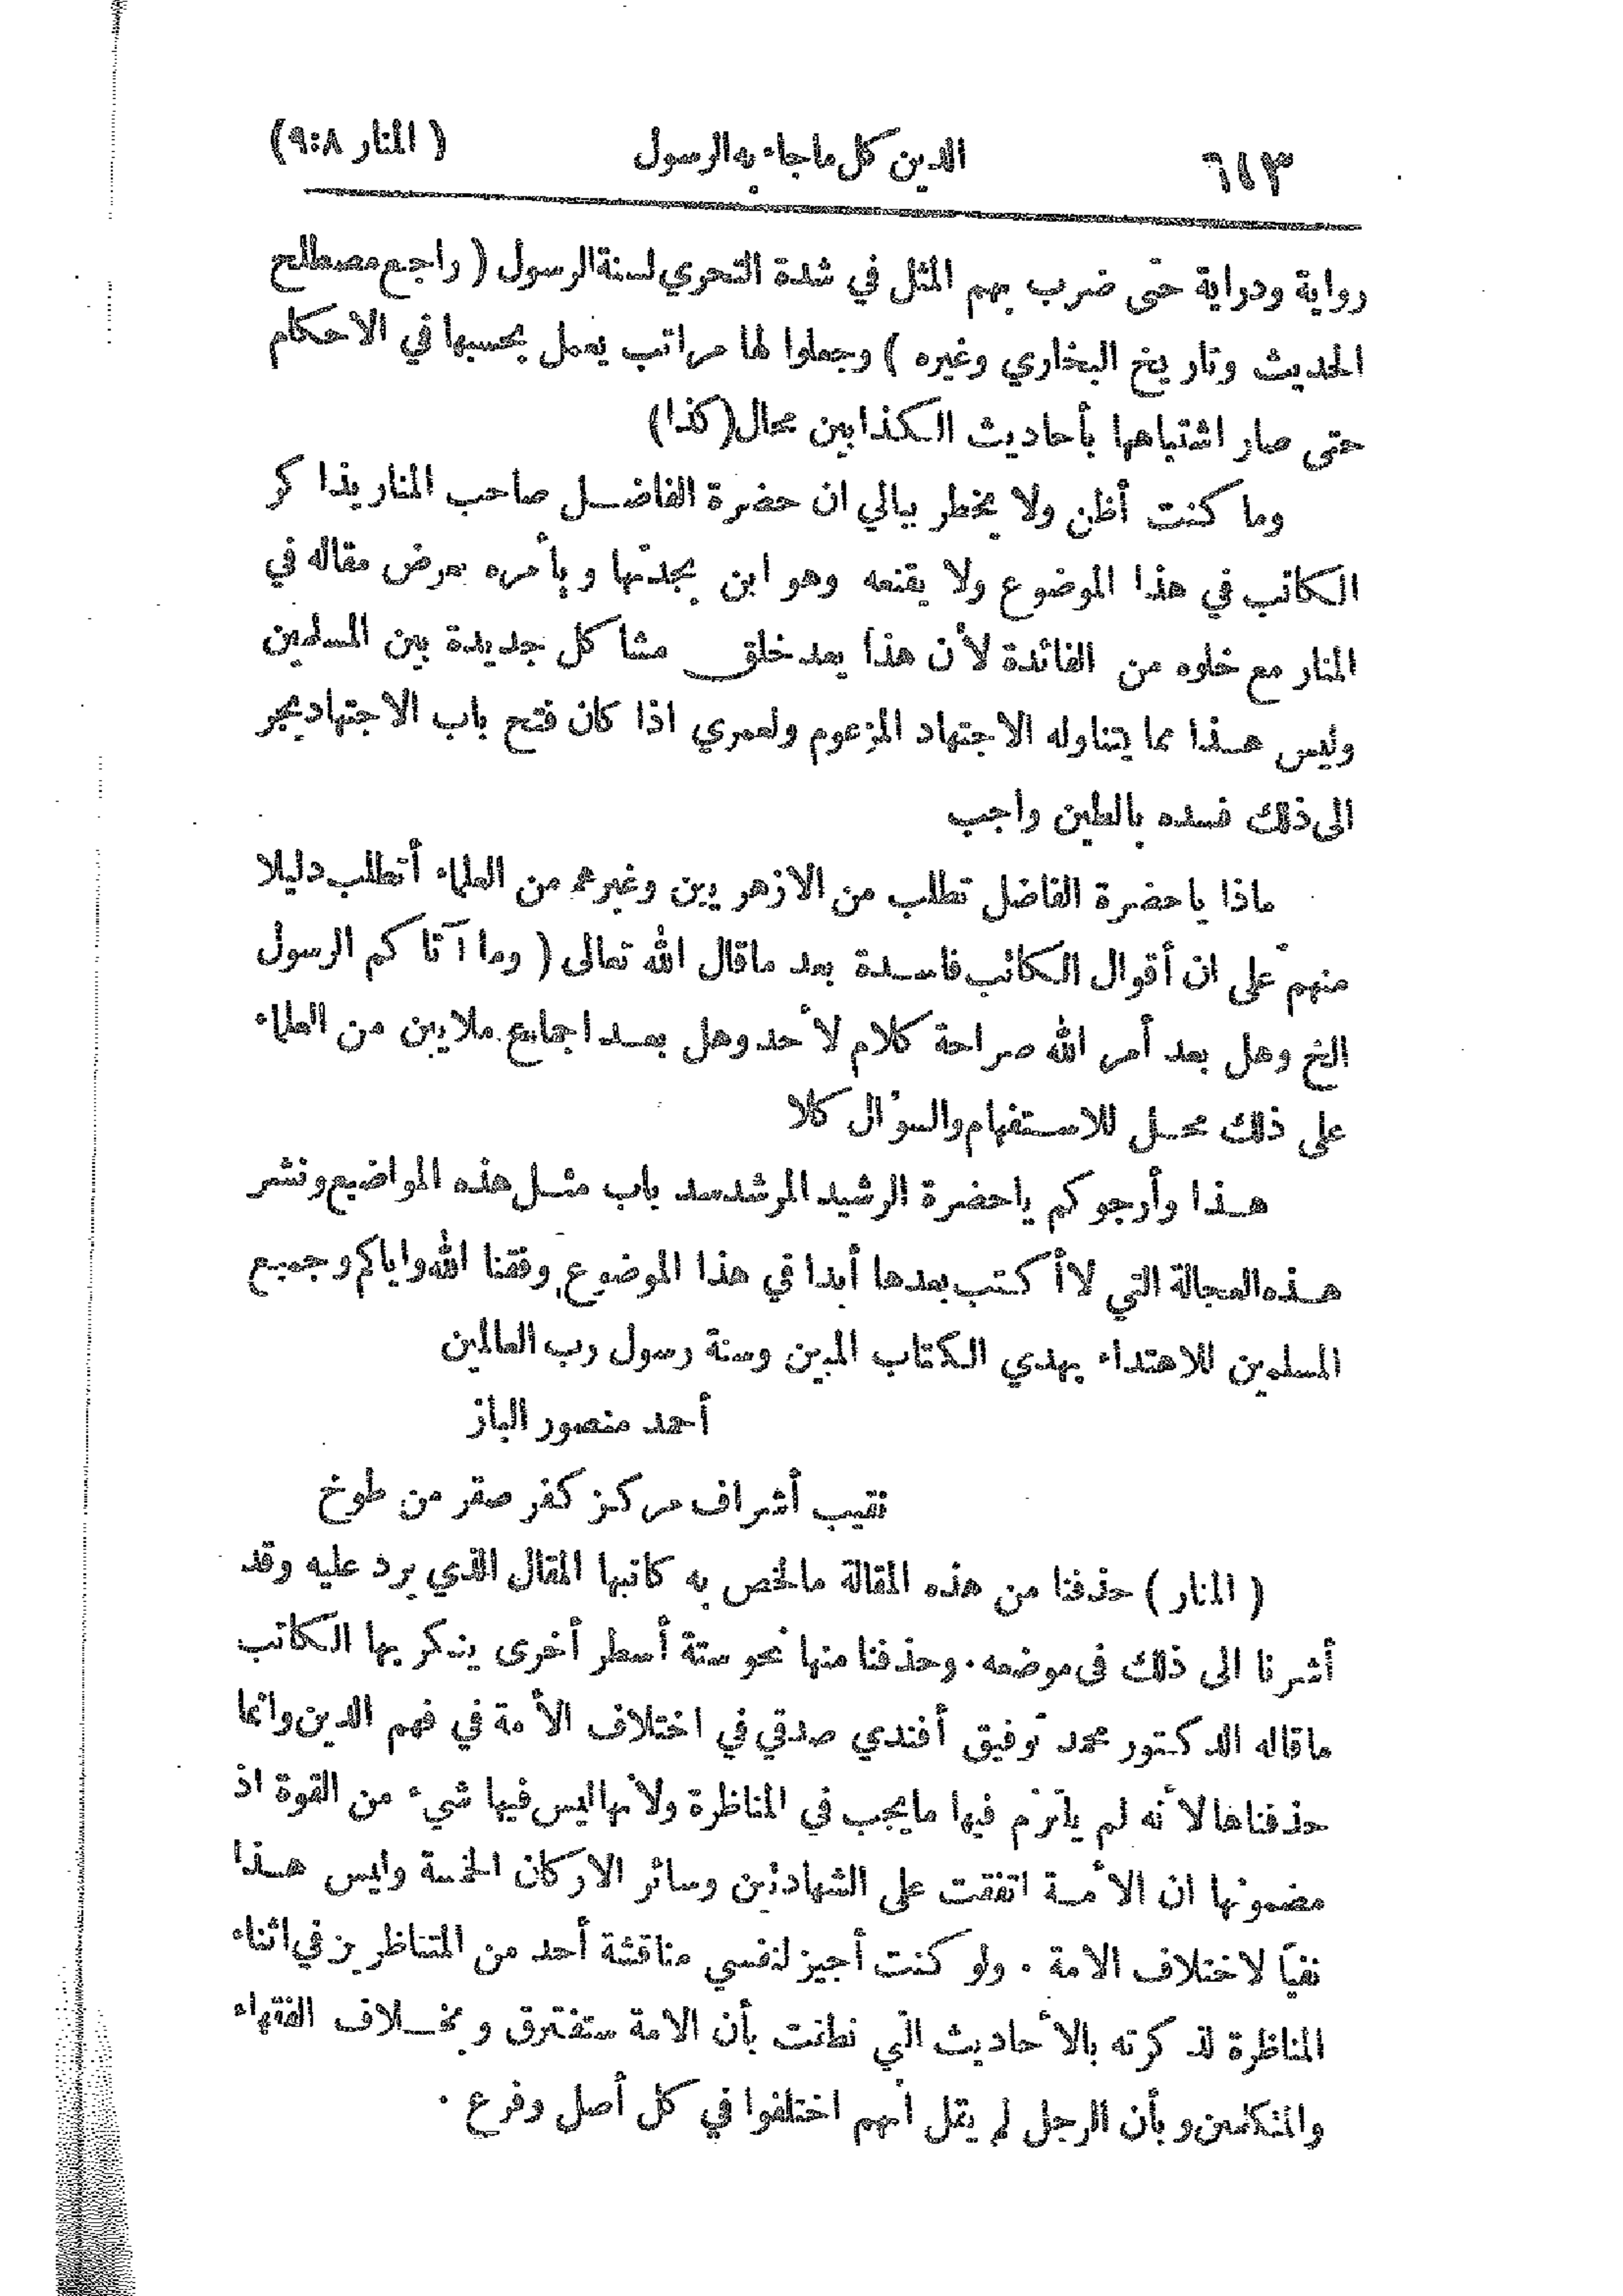 ٦١٣ الدين كل ماجاء به الرسول ( المنار ٩:٨)
رواية ودراية حتى ضرب بهم المثل في شدة التحري لسنة الرسول ( راجع مصطلح
الحديث وتاريخ البخاري وغيره ) وجعلوا لها مراتب يعمل بحسبها في الاحكام
حتى صار اشتباهها بأحاديث الكذابين محال (كذا)
وما كنت أظن ولا يخطر ببالي ان حضرة الفاضل صاحب المنار يذاكر
الكاتب في هذا الموضوع ولا يقنعه وهو ابن بجدتها ويأمره بعرض مقاله في
المنار مع خلوه من الفائدة لأن هذا يعد خلق مشاكل جديدة بين المسلمين
وليس هذا مما يتناوله الاجتهاد المزعوم ولعمري اذا كان فتح باب الاجتهاد يجر
الى ذلك فسده بالطين واجب
ماذا ياحضرة الفاضل تطلب من الازهريين وغيرهم من العلماء أتطلب دليلا
منهم على ان أقوال الكاتب فاسدة بعد ماقال الله تعالى ( وما آتاكم الرسول
الخ وهل بعد أمر الله صراحة كلام لأحد وهل بعد اجماع ملايين من العلماء
على ذلك محل للاستفهام والسؤال كلا
هذا وأرجوكم ياحضرة الرشيد المرشد سد باب مثل هذه المواضيع ونشر
هذه العجالة التي لا أكتب بعدها أبدا في هذا الموضوع وفقنا الله واياكم وجميع
المسلمين للاهتداء بهدي الكتاب المبين وسنة رسول رب العالمين
أحمد منصور الباز
نقيب أشراف مركز كفر صقر من طوخ
( المنار ) حذفنا من هذه المقالة مالخص به كاتبها المقال الذي يرد عليه وقد
أشرنا الى ذلك في موضعه . وحذفنا منها نحو ستة أسطر أخرى يذكر بها الكاتب
ماقاله الدكتور محمد توفيق أفندي صدقي في اختلاف الأمة في فهم الدين وانما
حذفناها لأنه لم يلتزم فيها مايجب في المناظرة ولأنها ليس فيها شيء من القوة اذ
مضمونها ان الأمة اتفقت على الشهادتين وسائر الاركان الخمسة وليس هذا
نفياً لاختلاف الامة . ولو كنت أجيز لنفسي مناقشة أحد من المتناظرين في اثناء
المناظرة لذكرته بالأحاديث التي نطقت بأن الامة ستفترق وبخلاف الفقهاء
والمتكلمين وبأن الرجل لم يقل أنهم اختلفوا في كل أصل وفرع .